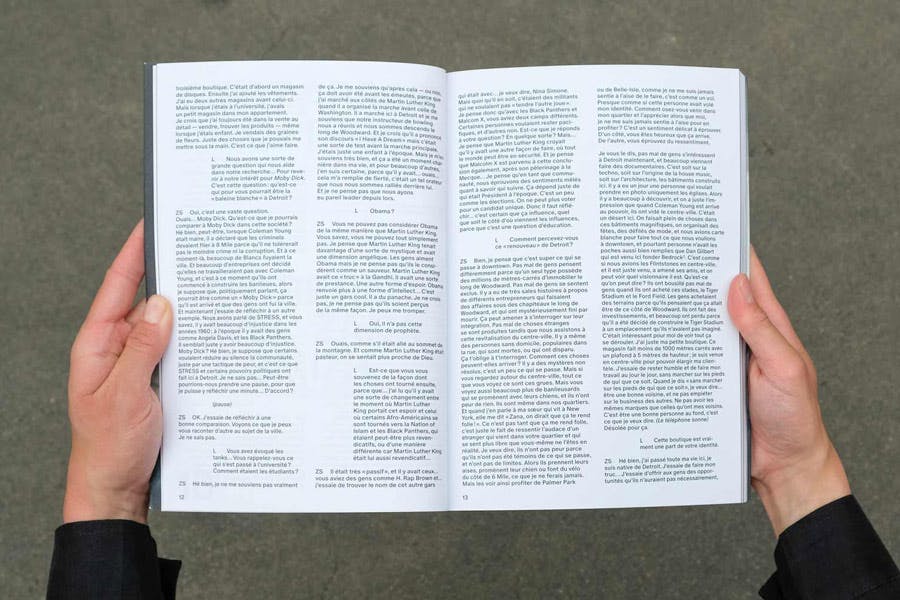 troisième boutique. C'était d'abord un magasin
de disques. Ensuite j'ai ajouté les vêtements.
J'ai eu deux autres magasins avant celui-ci.
Mais lorsque j'étais à l'université, j'avais
un petit magasin dans mon appartement.
Je crois que j'ai toujours été dans la vente au
détail — vendre, troquer des produits — même
lorsque j'étais enfant. Je vendais des graines
de fleurs. Juste des choses que je pouvais me
mettre sous la main. C'est ce que j'aime faire.
L Nous avons une sorte de
grande question qui nous aide
dans notre recherche... Pour reve-
nir à notre intérêt pour Moby Dick.
C'est cette question : qu'est-ce
qui pour vous pourrait être la
« baleine blanche » à Detroit ?
ZS Oui, c'est une vaste question.
Ouais... Moby Dick. Qu'est-ce que je pourrais
comparer à Moby Dick dans cette société ?
Hé bien, peut-être, lorsque Coleman Young
était maire, il a déclaré que les criminels
devaient filer à 8 Mile parce qu'il ne tolérerait
pas le moindre crime ni la corruption. Et à ce
moment-là, beaucoup de Blancs fuyaient la
ville. Et beaucoup d'entreprises ont décidé
qu'elles ne travailleraient pas avec Coleman
Young, et c'est à ce moment qu'ils ont
commencé à construire les banlieues, alors
je suppose que, politiquement parlant, ça
pourrait être comme un « Moby Dick » parce
qu'il est arrivé et que des gens ont fui la ville.
Et maintenant j'essaie de réfléchir à un autre
exemple. Nous avons parlé de STRESS, et vous
savez, il y avait beaucoup d'injustice dans les
années 1960 ; à l'époque il y avait des gens
comme Angela Davis, et les Black Panthers,
il semblait juste y avoir beaucoup d'injustice.
Moby Dick ? Hé bien, je suppose que certains
voulaient réduire au silence la communauté,
juste par une tactique de peur, et c'est ce que
STRESS et certains pouvoirs politiques ont
fait ici à Detroit. Je ne sais pas... Peut-être
pourrions-nous prendre une pause, pour que
je puisse y réfléchir une minute... D'accord ?
(pause)
ZS OK. J'essaie de réfléchir à une
bonne comparaison. Voyons ce que je peux
vous raconter d'autre au sujet de la ville.
Je ne sais pas.
L Vous avez évoqué les
tanks... Vous rappelez-vous ce
qui s'est passé à l'université ?
Comment étaient les étudiants ?
ZS Hé bien, je ne me souviens pas vraiment
12
de ça. Je me souviens qu'après cela — ou non,
ça doit avoir été avant les émeutes, parce que
j'ai marché aux côtés de Martin Luther King
quand il a organisé la marche avant celle de
Washington. Il a marché ici à Detroit et je me
souviens que notre instructeur de bowling
nous a réunis et nous sommes descendus le
long de Woodward. Et je crois qu'il a prononcé
son discours « I Have A Dream » mais c'était
une sorte de test avant la marche principale.
J'étais juste une enfant à l'époque. Mais je m'en
souviens très bien, et ça a été un moment char-
nière dans ma vie, et pour beaucoup d'autres,
j'en suis certaine, parce qu'il y avait... ouais...
cela m'a remplie de fierté, c'était un tel orateur
que nous nous sommes ralliés derrière lui.
Et je ne pense pas que nous ayons
eu pareil leader depuis lors.
L Obama ?
ZS Vous ne pouvez pas considérer Obama
de la même manière que Martin Luther King.
Vous savez, vous ne pouvez tout simplement
pas. Je pense que Martin Luther King tenait
davantage d'une sorte de mystique et avait
une dimension angélique. Les gens aiment
Obama mais je ne pense pas qu'ils le consi-
dèrent comme un sauveur. Martin Luther King
avait ce « truc » à la Gandhi. Il avait une sorte
de prestance. Une autre forme d'espoir. Obama
renvoie plus à une forme d'intellect... C'est
juste un gars cool, il a du panache. Je ne crois
pas, je ne pense pas qu'ils soient perçus
de la même façon. Je peux me tromper.
L Oui, il n'a pas cette
dimension de prophète.
ZS Ouais, comme s'il était allé au sommet de
la montagne. Et comme Martin Luther King était
pasteur, on se sentait plus proche de Dieu.
L Est-ce que vous vous
souvenez de la façon dont
les choses ont tourné ensuite,
parce que... j'ai lu qu'il y avait
une sorte de changement entre
le moment où Martin Luther
King portait cet espoir et celui
où certains Afro-Américains se
sont tournés vers la Nation of
Islam et les Black Panthers, qui
étaient peut-être plus reven-
dicatifs, ou d'une manière
différente car Martin Luther King
était lui aussi revendicatif...
ZS Il était très « passif », et il y avait ceux...
vous aviez des gens comme H. Rap Brown et...
J'essaie de trouver le nom de cet autre gars
qui était avec... je veux dire, Nina Simone.
Mais quoi qu'il en soit, c'étaient des militants
qui ne voulaient pas « tendre l'autre joue ».
Je pense donc qu'avec les Black Panthers et
Malcom X, vous aviez deux camps différents.
Certaines personnes voulaient rester paci-
fiques, et d'autres non. Est-ce que je réponds
à votre question en quelque sorte ? Mais...
Je pense que Martin Luther King croyait
qu'il y avait une autre façon de faire, où tout
le monde peut être en sécurité. Et je pense
que Malcolm X est parvenu à cette conclu-
sion également, après son pèlerinage à la
Mecque... Je pense qu'en tant que commu-
nauté, nous éprouvions des sentiments mêlés
quant à savoir qui suivre. Ça dépend juste de
qui était Président à l'époque. C'est un peu
comme les élections. On ne peut plus voter
pour un candidat unique. Donc il faut réflé-
chir... c'est certain que ça influence, quel
que soit le côté d'où viennent les influences,
parce que c'est une question d'éducation.
L Comment percevez-vous
ce « renouveau » de Detroit ?
ZS Bien, je pense que c'est super ce qui se
passe à downtown. Pas mal de gens pensent
différemment parce qu'un seul type possède
des millions de mètres-carrés d'immobilier le
long de Woodward. Pas mal de gens se sentent
exclus. Il y a eu de très sales histoires à propos
de différents entrepreneurs qui faisaient
des affaires sous des chapiteaux le long de
Woodward, et qui ont mystérieusement fini par
mourir. Ça peut amener à s'interroger sur leur
intégration. Pas mal de choses étranges
se sont produites tandis que nous assistons à
cette revitalisation du centre-ville. Il y a même
des personnes sans domicile, populaires dans
la rue, qui sont mortes, ou qui ont disparu.
Ça t'oblige à t'interroger. Comment ces choses
peuvent-elles arriver ? Il y a des mystères non
résolus, c'est un peu ce qui se passe. Mais si
vous regardez autour du centre-ville, tout ce
que vous voyez ce sont ces grues. Mais vous
voyez aussi beaucoup plus de banlieusards
qui se promènent avec leurs chiens, et ils n'ont
peur de rien. Ils sont même dans nos quartiers.
Et quand j'en parle à ma sœur qui vit à New
York, elle me dit « Zana, on dirait que ça te rend
folle ! ». Ce n'est pas tant que ça me rend folle,
c'est juste le fait de ressentir l'audace d'un
étranger qui vient dans votre quartier et qui
se sent plus libre que vous-même ne l'êtes en
réalité. Je veux dire, ils n'ont pas peur parce
qu'ils n'ont pas été témoins de ce qui se passe,
et n'ont pas de limites. Alors ils prennent leurs
aises, promènent leur chien ou font du vélo
du côté de 6 Mile, ce que je ne ferais jamais.
Mais les voir ainsi profiter de Palmer Park
13
ou de Belle-Isle, comme je ne me suis jamais
sentie à l'aise de le faire, c'est comme un vol.
Presque comme si cette personne avait volé
mon identité. Comment osez-vous venir dans
mon quartier et l'apprécier alors que moi,
je ne me suis jamais sentie à l'aise pour en
profiter ? C'est un sentiment délicat à éprouver.
D'un côté, vous êtes heureux que ça arrive.
De l'autre, vous éprouvez du ressentiment.
Je vous le dis, pas mal de gens s'intéressent
à Detroit maintenant, et beaucoup viennent
faire des documentaires. C'est soit sur la
techno, soit sur l'origine de la house music,
soit sur l'architecture, les bâtiments construits
ici. Il y a eu un jour une personne qui voulait
prendre en photo uniquement les églises. Alors
il y a beaucoup à découvrir, et on a juste l'im-
pression que quand Coleman Young est arrivé
au pouvoir, ils ont vidé le centre-ville. C'était
un désert ici. On faisait plein de choses dans
ces bâtiments magnifiques, on organisait des
fêtes, des défilés de mode, et nous avions carte
blanche pour faire tout ce que nous voulions
à downtown, et pourtant personne n'avait les
poches aussi bien remplies que Dan Gilbert
qui est venu ici fonder Bedrock⁵. C'est comme
si nous avions les Flintstones en centre-ville,
et il est juste venu, a amené ses amis, et on
peut voir quel visionnaire il est. Qu'est-ce
qu'on peut dire ? Ils ont boudillé pas mal de
gens quand ils ont acheté ces stades, le Tiger
Stadium et le Ford Field. Les gens achetaient
des terrains parce qu'ils pensaient que ça allait
être de ce côté de Woodward. Ils ont fait des
investissements, et beaucoup ont perdu parce
qu'il a été décidé de construire le Tiger Stadium
à un emplacement qu'ils n'avaient pas imaginé.
C'était intéressant pour moi de voir tout ça
se dérouler. J'ai juste ma petite boutique. Ce
magasin fait moins de 1000 mètres carrés avec
un plafond à 5 mètres de hauteur ; je suis venue
en centre-ville pour pouvoir élargir ma clien-
tèle. J'essaie de rester humble et de faire mon
travail au jour le jour, sans marcher sur les pieds
de qui que ce soit. Quand je dis « sans marcher
sur les pieds de qui que ce soit », je veux dire...
être une bonne voisine, et ne pas empiéter
sur le business des autres. Ne pas avoir les
mêmes marques que celles qu'ont mes voisins.
C'est être une bonne personne au fond, c'est
ce que je veux dire. (Le téléphone sonne)
Désolée pour ça.
L Cette boutique est vrai-
ment une part de votre identité.
ZS Hé bien, j'ai passé toute ma vie ici, je
suis native de Detroit. J'essaie de faire mon
truc... J'essaie d'offrir aux gens des oppor-
tunités qu'ils n'auraient pas nécessairement,